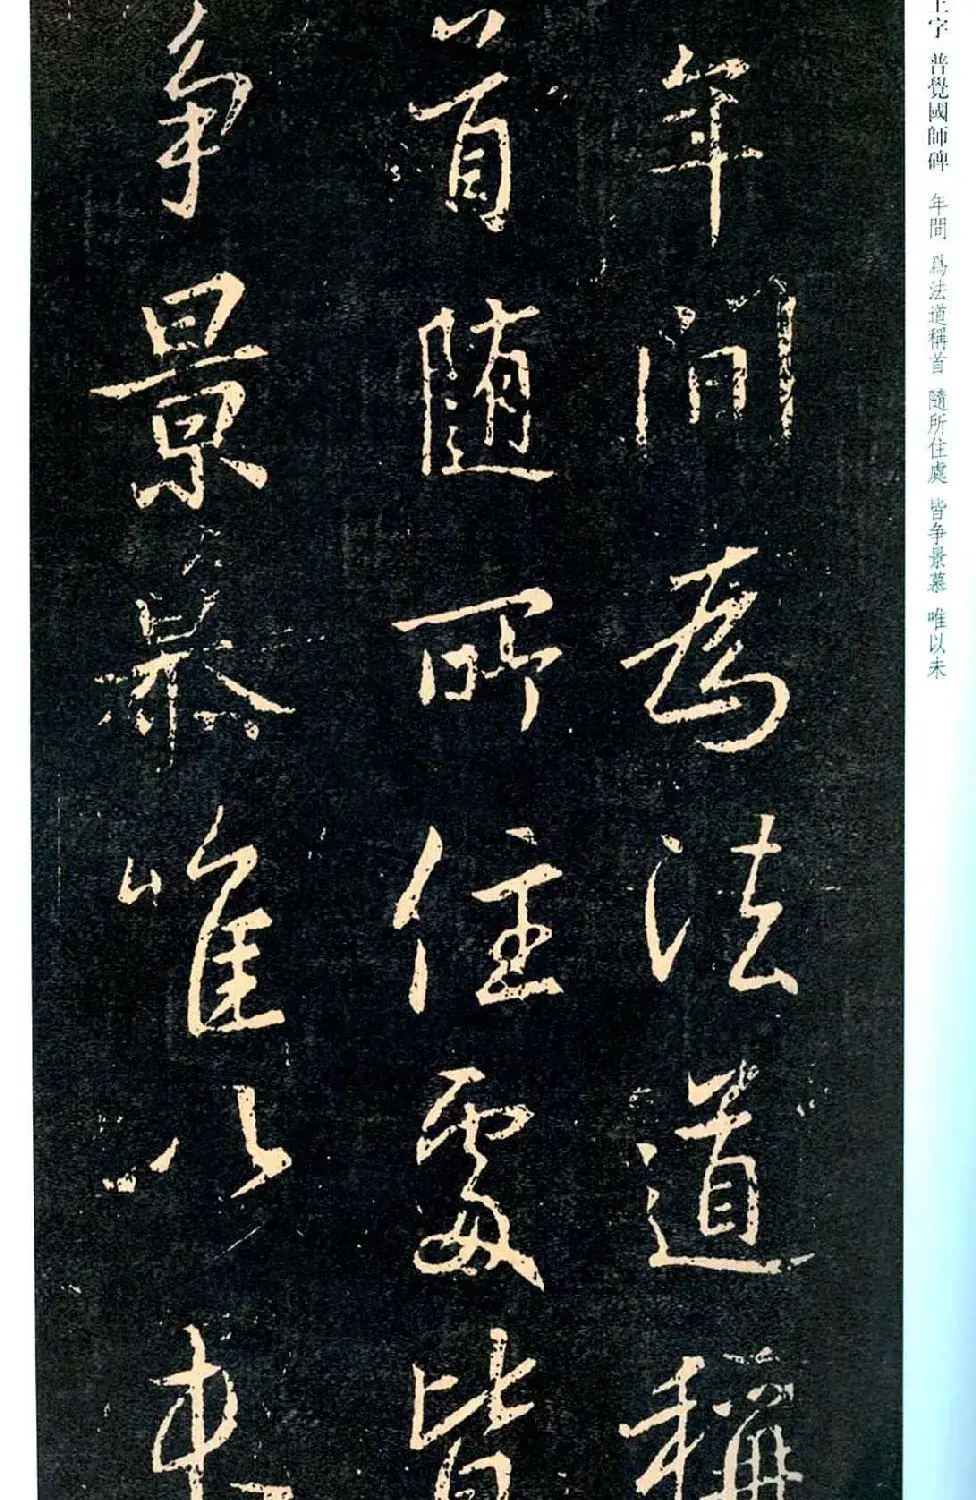 年間為法道稱
首随所住處皆
争景慕唯以未
王字 普覺國師碑 年間 爲法道稱首 隨所住處 皆争景慕 唯以未